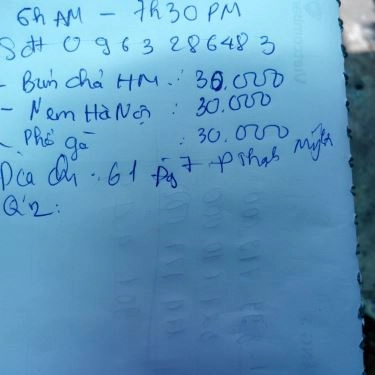 6h AM - 7h30 PM
Sđt 0 9 6 3 2 8 6 4 8 3
- Bún chả HN : 30.000
- Nem Hà Nội : 30.000
- Phở gà : 30.000
Địa chỉ : 61 Đg 7 P Thạnh Mỹ
Q'2: